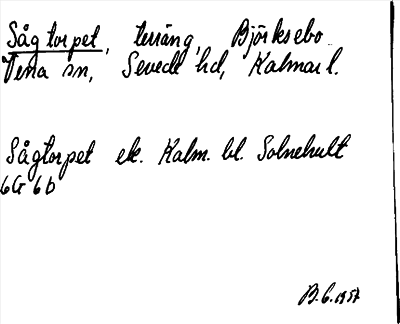 Sågtorpet, terräng, Björksebo
Vena sn, Sevede hd, Kalmar l.
Sågtorpet ek. Kalm. bl. Solnehult
6G 6b
B.G. 1957